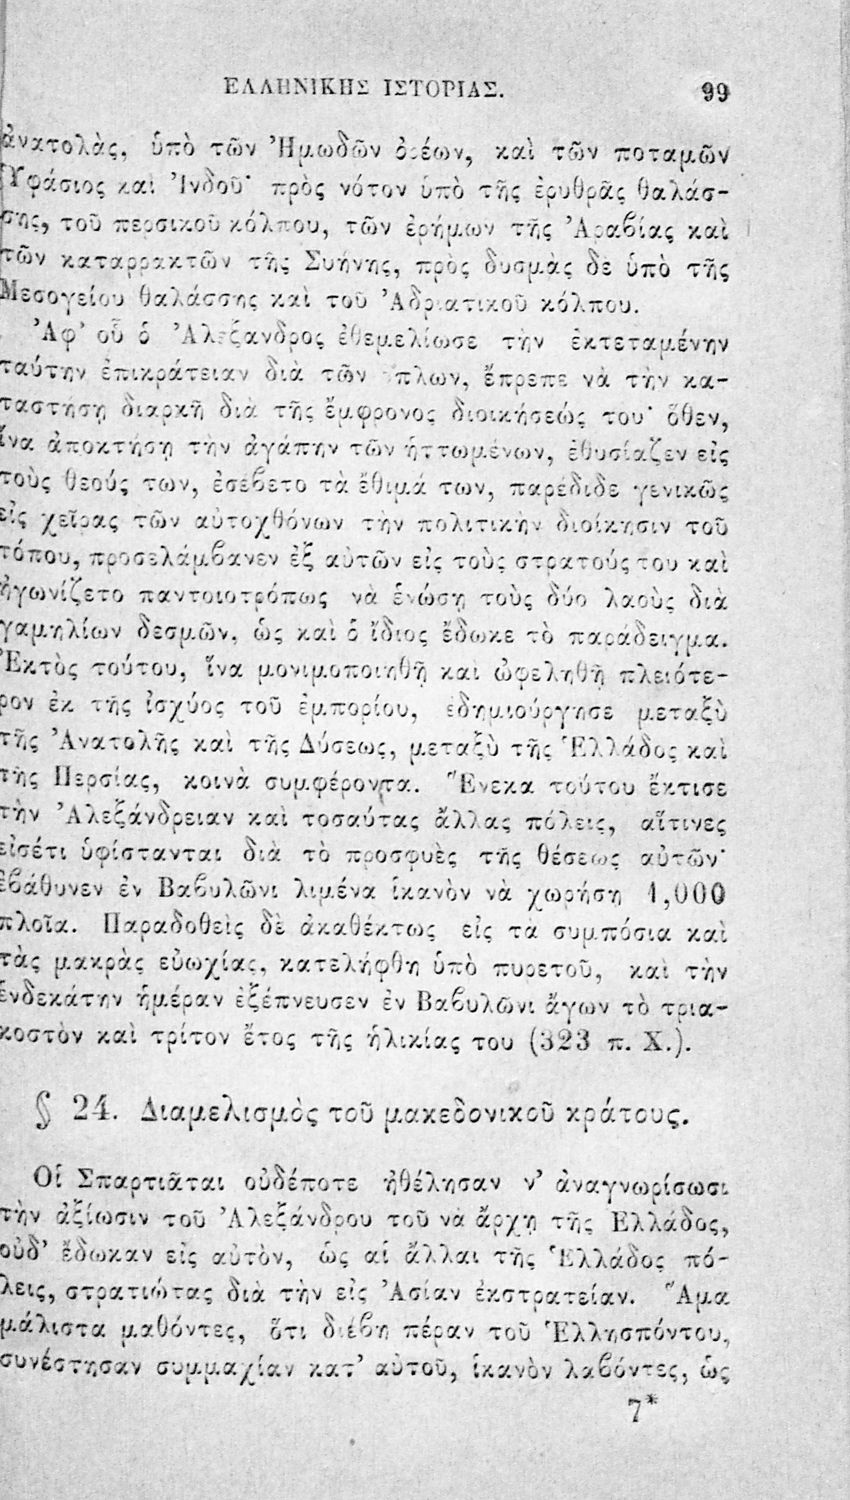 ΕΛΛΗΝΙΚΗΣ ΙΣΤΟΡΙΑΣ. 99
ἀνατολὰς, ὑπὸ τῶν Ἠμωδῶν ὀρέων, καὶ τῶν ποταμῶν
Ὑφάσιος καὶ Ἰνδοῦ· πρὸς νότον ὑπὸ τῆς ἐρυθρᾶς θαλάσ-
σης, τοῦ περσικοῦ κόλπου, τῶν ἐρήμων τῆς Ἀραβίας καὶ
τῶν καταρρακτῶν τῆς Συήνης, πρὸς δυσμὰς δὲ ὑπὸ τῆς
Μεσογείου θαλάσσης καὶ τοῦ Ἀδριατικοῦ κόλπου.
Ἀφ’ οὗ ὁ Ἀλέξανδρος ἐθεμελίωσε τὴν ἐκτεταμένην
ταύτην ἐπικράτειαν διὰ τῶν ὅπλων, ἔπρεπε νὰ τὴν κα-
ταστήσῃ διαρκῆ διὰ τῆς ἔμφρονος διοικήσεώς του· ὅθεν,
ἵνα ἀποκτήσῃ τὴν ἀγάπην τῶν ἡττωμένων, ἐθυσίαζεν εἰς
τοὺς θεούς των, ἐσέβετο τὰ ἔθιμά των, παρέδιδε γενικῶς
εἰς χεῖρας τῶν αὐτοχθόνων τὴν πολιτικὴν διοίκησιν τοῦ
τόπου, προσελάμβανεν ἐξ αὐτῶν εἰς τοὺς στρατούς του καὶ
ἠγωνίζετο παντοιοτρόπως νὰ ἑνώσῃ τοὺς δύο λαοὺς διὰ
γαμηλίων δεσμῶν, ὡς καὶ ὁ ἴδιος ἔδωκε τὸ παράδειγμα.
Ἐκτὸς τούτου, ἵνα μονιμοποιηθῇ καὶ ὠφεληθῇ πλειότε-
ρον ἐκ τῆς ἰσχύος τοῦ ἐμπορίου, ἐδημιούργησε μεταξὺ
τῆς Ἀνατολῆς καὶ τῆς Δύσεως, μεταξὺ τῆς Ἑλλάδος καὶ
τῆς Περσίας, κοινὰ συμφέροντα. Ἕνεκα τούτου ἔκτισε
τὴν Ἀλεξάνδρειαν καὶ τοσαύτας ἄλλας πόλεις, αἵτινες
εἰσέτι ὑφίστανται διὰ τὸ προσφυὲς τῆς θέσεως αὐτῶν·
ἐβάθυνεν ἐν Βαβυλῶνι λιμένα ἱκανὸν νὰ χωρήσῃ 1,000
πλοῖα. Παραδοθεὶς δὲ ἀκαθέκτως εἰς τὰ συμπόσια καὶ
τὰς μακρὰς εὐωχίας, κατελήφθη ὑπὸ πυρετοῦ, καὶ τὴν
ἑνδεκάτην ἡμέραν ἐξέπνευσεν ἐν Βαβυλῶνι ἄγων τὸ τρια-
κοστὸν καὶ τρίτον ἔτος τῆς ἡλικίας του (323 π. Χ.).
§ 24. Διαμελισμὸς τοῦ μακεδονικοῦ κράτους.
Οἱ Σπαρτιᾶται οὐδέποτε ἠθέλησαν ν’ ἀναγνωρίσωσι
τὴν ἀξίωσιν τοῦ Ἀλεξάνδρου τοῦ νὰ ἄρχῃ τῆς Ἑλλάδος,
οὐδ’ ἔδωκαν εἰς αὐτὸν, ὡς αἱ ἄλλαι τῆς Ἑλλάδος πό-
λεις, στρατιώτας διὰ τὴν εἰς Ἀσίαν ἐκστρατείαν. Ἅμα
μάλιστα μαθόντες, ὅτι διέβη πέραν τοῦ Ἑλλησπόντου,
συνέστησαν συμμαχίαν κατ’ αὐτοῦ, ἱκανὸν λαβόντες, ὡς
7*